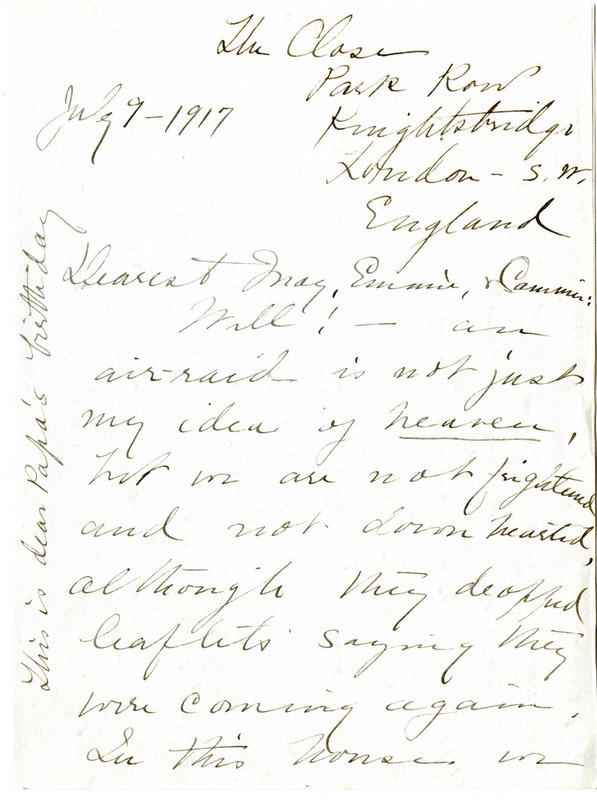 The Close
Park Row
July 9-1917
Knightsbridge
London - S.W.
England
Dearest May, Emmie, & Cammie:
Well! - an
air-raid is not just
my idea of heaven,
but we are not frightened
and not down hearted,
although they dropped
leaflets saying they
were coming again.
In this house we
This is dear Papa's birth-day